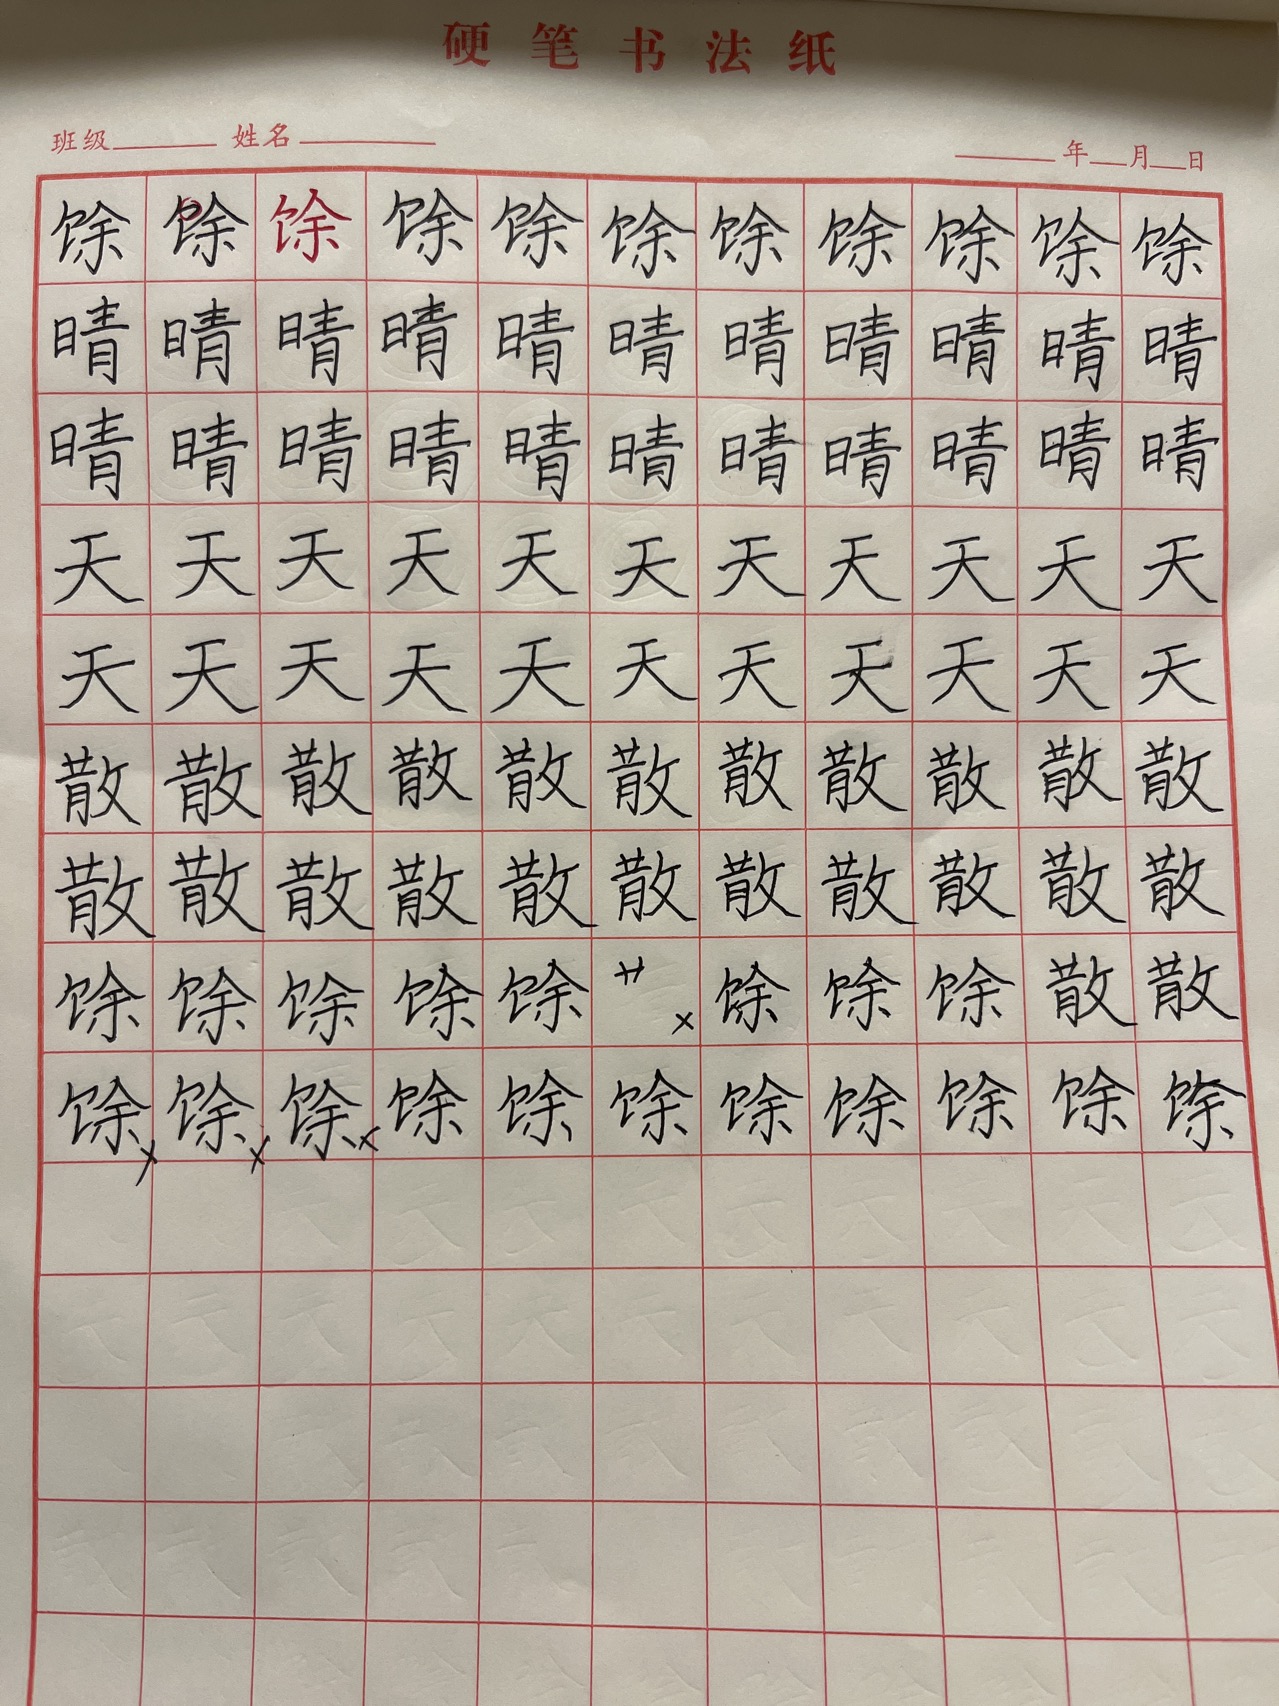 硬笔书法纸
班级 姓名 年 月 日
馀馀馀馀馀馀馀馀馀馀馀
晴晴晴晴晴晴晴晴晴晴晴
晴晴晴晴晴晴晴晴晴晴晴
天天天天天天天天天天天
天天天天天天天天天天天
散散散散散散散散散散散
散散散散散散散散散散散
馀馀馀馀馀馀馀馀散散
馀馀馀馀馀馀馀馀馀馀馀